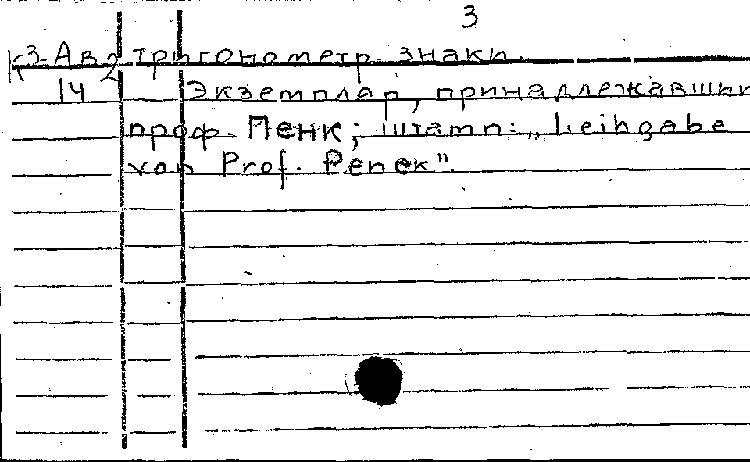 3
К3-Ав2 тригонометр. знаки.
14 Экземпляр, принадлежавший
проф. Пенк; штамп: „Leihgabe
von Prof. Penck".